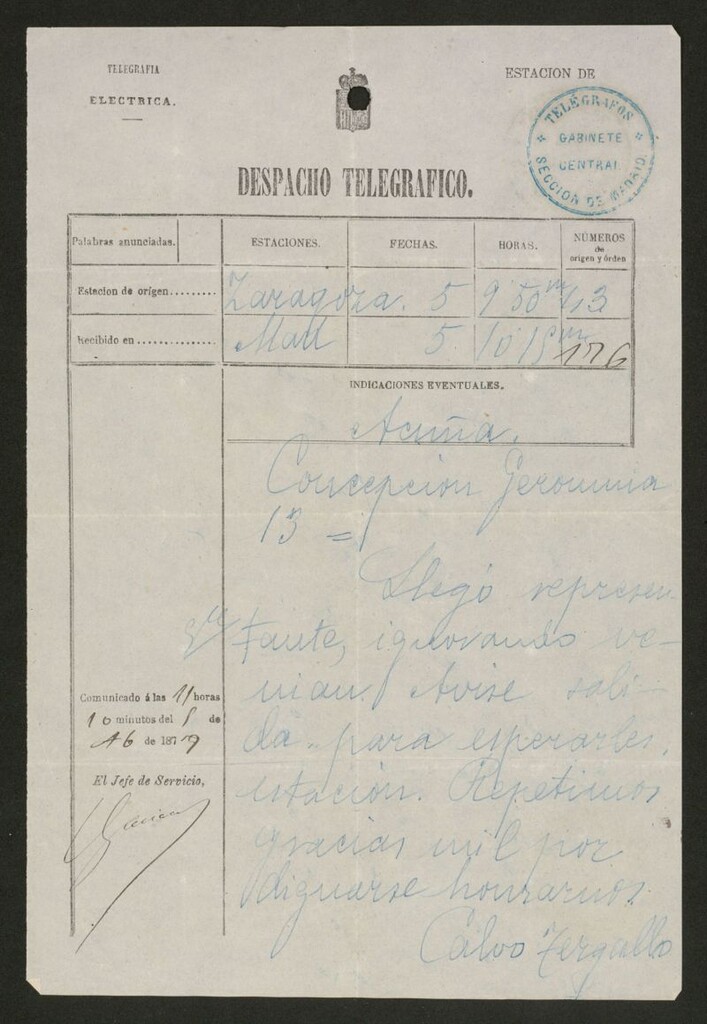 TELEGRAFIA
ELECTRICA.
ESTACION DE
TELÉGRAFOS
GABINETE
CENTRAL
SECCION DE MADRID
DESPACHO TELEGRAFICO.
Palabras anunciadas. ESTACIONES. FECHAS. HORAS. NÚMEROS
de
origen y órden
Estacion de origen......... Zaragoza. 5 9 50 m
Recibido en .............. 5 10 15 m 176
INDICACIONES EVENTUALES.
Acuña.
Concepcion Geronima
13 =
Llegó represen-
tante, ignorando ve-
nian. Avise sali-
da para esperarles
estación. Repetimos
gracias mil por
dignarse honrarnos.
Calvo
Comunicado á las 11 horas
10 minutos del 5 de
Ab de 1879
El Jefe de Servicio,